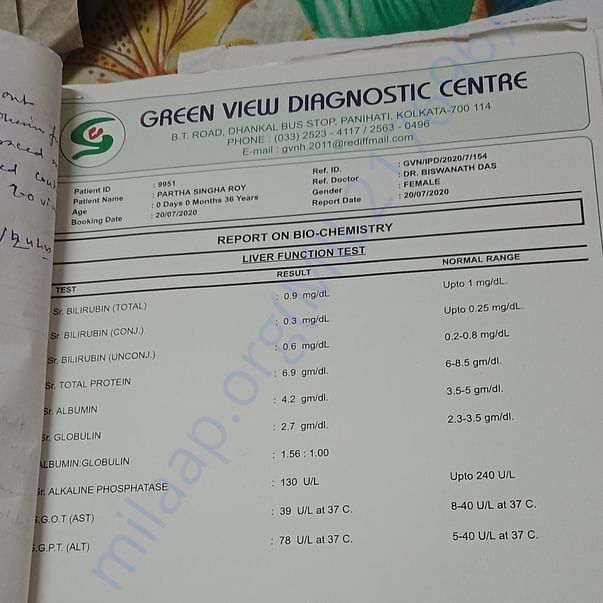 GREEN VIEW DIAGNOSTIC CENTRE
B.T. ROAD, DHANKAL BUS STOP, PANIHATI, KOLKATA-700 114
PHONE : (033) 2523 - 4117 / 2563 - 0496
E-mail : gvnh.2011@rediffmail.com
Patient ID : 9951 Ref. ID. : GVN/IPD/2020/7/154
Patient Name : PARTHA SINGHA ROY Ref. Doctor : DR. BISWANATH DAS
Age : 0 Days 0 Months 36 Years Gender : FEMALE
Booking Date : 20/07/2020 Report Date : 20/07/2020
REPORT ON BIO-CHEMISTRY
LIVER FUNCTION TEST
TEST RESULT NORMAL RANGE
Sr. BILIRUBIN (TOTAL) : 0.9 mg/dL Upto 1 mg/dL.
Sr. BILIRUBIN (CONJ.) : 0.3 mg/dL Upto 0.25 mg/dL.
Sr. BILIRUBIN (UNCONJ.) : 0.6 mg/dL 0.2-0.8 mg/dL
Sr. TOTAL PROTEIN : 6.9 gm/dl. 6-8.5 gm/dl.
Sr. ALBUMIN : 4.2 gm/dl. 3.5-5 gm/dl.
Sr. GLOBULIN : 2.7 gm/dl. 2.3-3.5 gm/dl.
ALBUMIN:GLOBULIN : 1.56 : 1.00
Sr. ALKALINE PHOSPHATASE : 130 U/L Upto 240 U/L
S.G.O.T (AST) : 39 U/L at 37 C. 8-40 U/L at 37 C.
S.G.P.T. (ALT) : 78 U/L at 37 C. 5-40 U/L at 37 C.